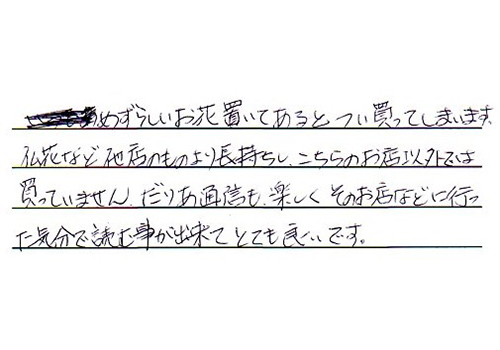 めずらしいお花置いてあると つい買ってしまいます。
仏花など他店のものより長持ちし、こちらのお店以外では
買っていません。だりあ通信も、楽しく そのお店などに行っ
た気分で読む事が出来て とても良いです。